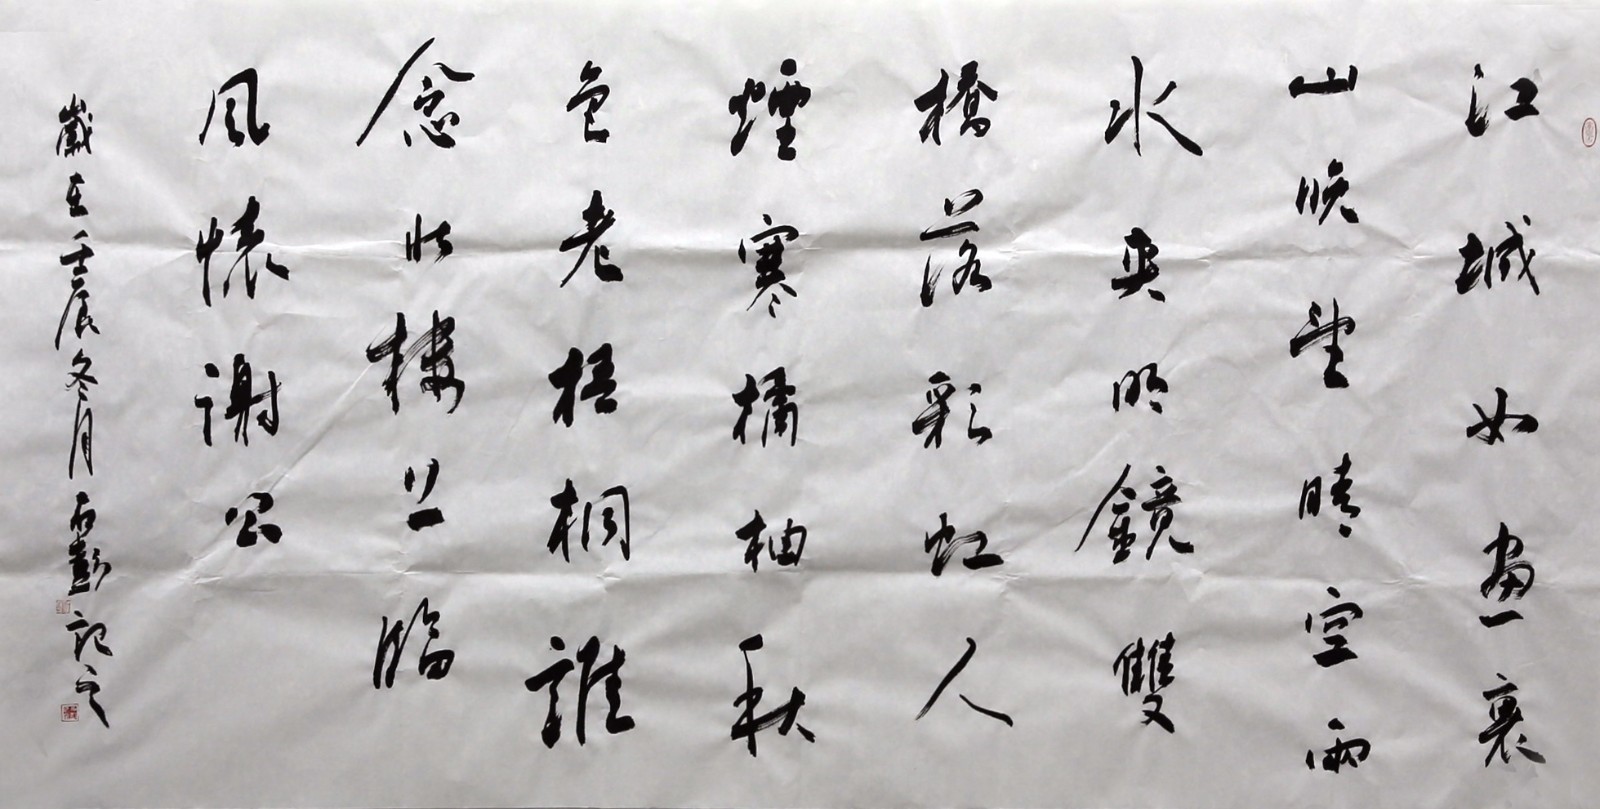 江城如畫裏
山晚望晴空兩
水夾明鏡雙
橋落彩虹人
煙寒橘柚秋
色老梧桐誰
念北樓上臨
風懷謝公
歲在壬辰冬月石彭記之